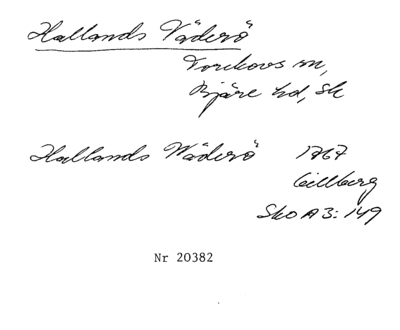 Hallands Väderö
Torekovs sn,
Bjäre hd, Sk
Hallands Wäderö 1767
Gillberg
SkoA3:149
Nr 20382